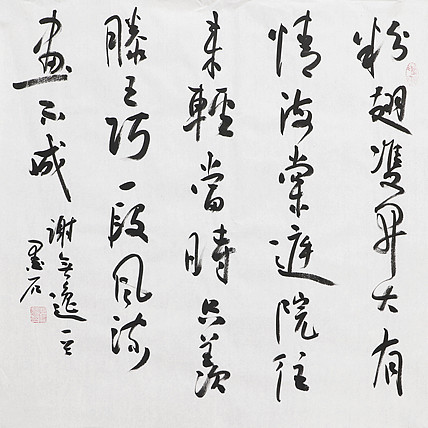 粉翅雙大有
情海棠庭院往
来輕當時只羨
滕王巧一段風流
畫不成
謝無逸
墨石